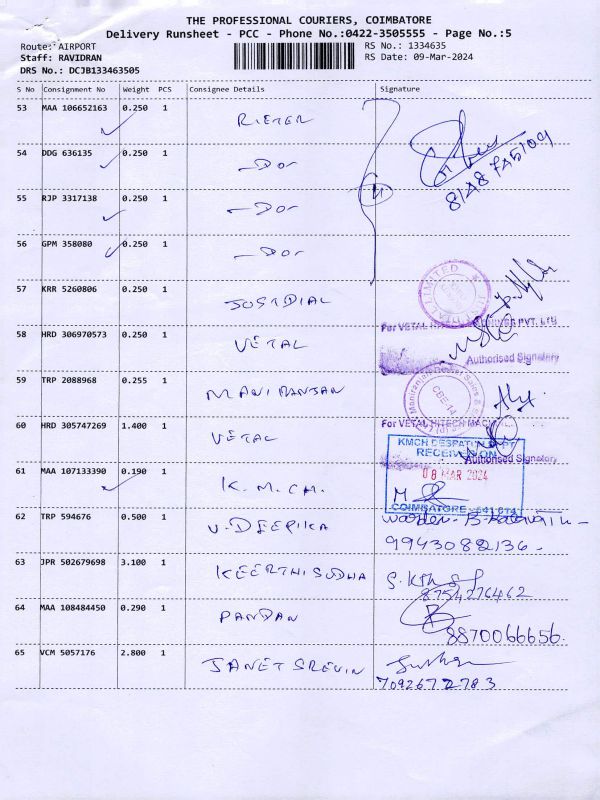 THE PROFESSIONAL COURIERS, COIMBATORE
Delivery Runsheet - PCC - Phone No.:0422-3505555 - Page No.:5
Route: AIRPORT
RS No.: 1334635
Staff: RAVIDRAN
RS Date: 09-Mar-2024
DRS No.: DCJB133463505
S No Consignment No Weight PCS Consignee Details Signature
53 MAA 106652163 0.250 1 RIETER
54 DDG 636135 0.250 1 -Do-
55 RJP 3317138 0.250 1 -Do-
56 GPM 358080 0.250 1 -Do-
57 KRR 5260806 0.250 1 JUSTDIAL
58 HRD 306970573 0.250 1 VETAL
For VETAL PVT. LTD.
Authorised Signatory
59 TRP 2088968 0.255 1 MANIRANJAN
60 HRD 305747269 1.400 1 VETAL
For VETAL HITECH
Authorised Signatory
KMCH DESPATCH DEPT
RECEIVED ON
08 MAR 2024
COIMBATORE - 641 014
61 MAA 107133390 0.190 1 K.M.CH.
62 TRP 594676 0.500 1 V.DEEPIKA
9943082136-
63 JPR 502679698 3.100 1 KEERTHISUDHA
8754276462
64 MAA 108484450 0.290 1 PANDAN
8870066656.
65 VCM 5057176 2.800 1 JANET SREVIN
7092672783